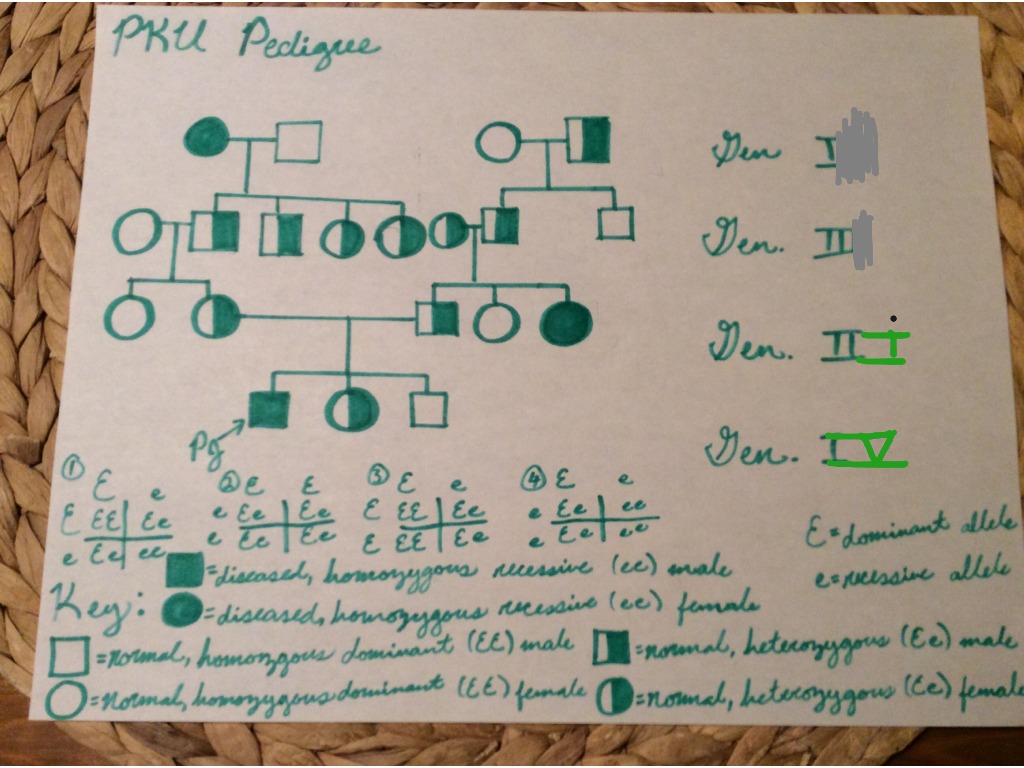 PKU Pedigree
Gen I
Gen. II
Gen. III
Gen. IV
Pg
① E e
E EE Ee
e Ee ee
② E E
e Ee Ee
e Ee Ee
③ E e
E EE Ee
E EE Ee
④ E e
e Ee ee
e Ee ee
E = dominant allele
e = recessive allele
Key:
= diseased, homozygous recessive (ee) male
= diseased, homozygous recessive (ee) female
= normal, homozgous dominant (EE) male
= normal, heterozygous (Ee) male
= normal, homozygous dominant (EE) female
= normal, heterozygous (Ee) female